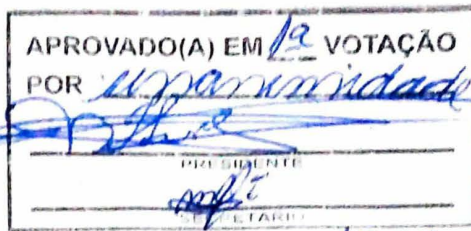 APROVADO(A) EM 1ª VOTAÇÃO
POR unanimidade
PRESIDENTE
SECRETÁRIO